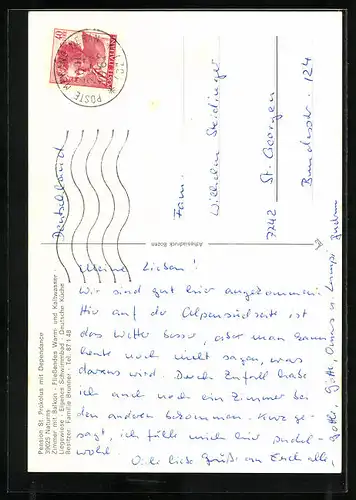 Pension St. Prokulus mit Dependance
39025 Naturns
Zimmer mit Balkon - Fließendes Warm- und Kaltwasser
Liegewiese - Eigenes Schwimmbad - Deutsche Küche
Besitzer: Familie Brunner - Tel. 87 1 48
Meine Lieben!
Wir sind gut hier angekommen.
Hier auf der Alpensüdseite ist
das Wetter besser, aber man kann
heute noch nicht sagen, was
daraus wird. Durch Zufall habe
ich auch noch ein Zimmer bei
den anderen bekommen. Kurz ge-
sagt, ich fühle mich hier
wohl
Viele liebe Grüße an Euch alle,
Gotte
Deutschland
Fam.
Wilhelm Steidinger
7742 St. Georgen
Bundesstr. 124
POSTE